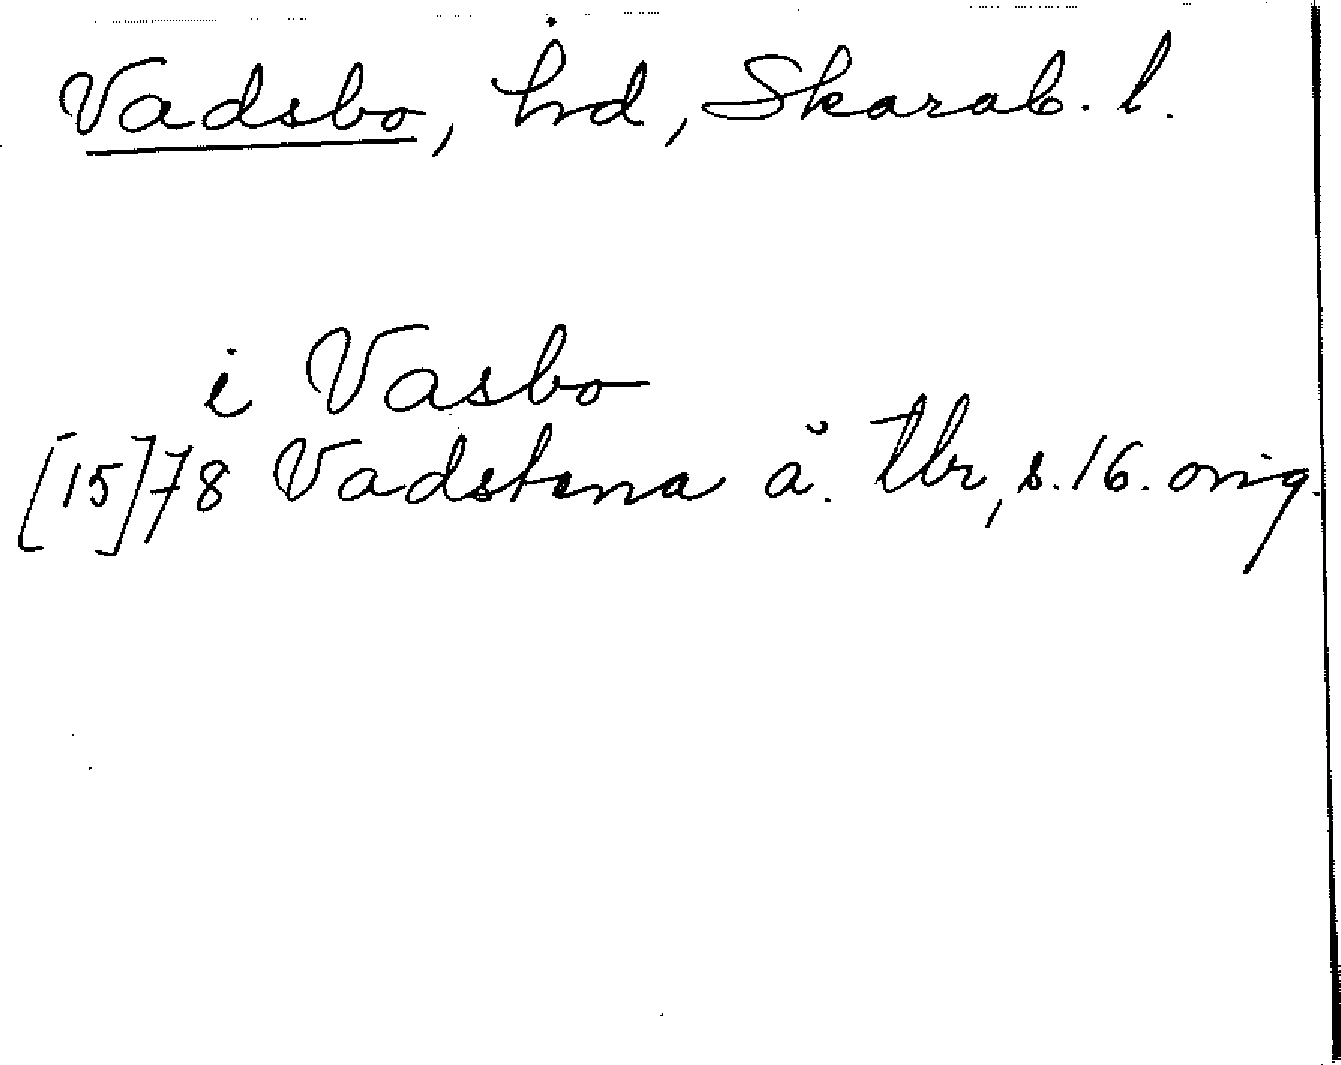 Vadsbo, hd, Skarab. l.
i Vasbo
[15]78 Vadstena ă. Ubr, s. 16. orig.